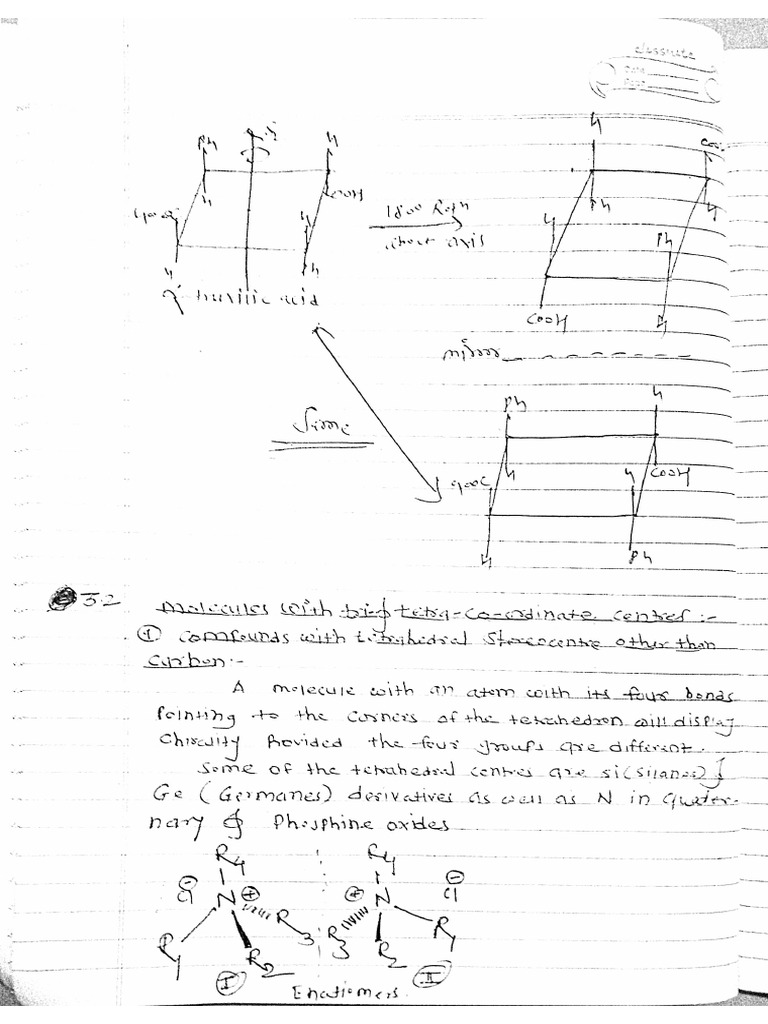 classmate
Date
Page
Ph
H
COOH
HOOC
H
H
H
Ph
truxilic acid
180° Rotn
about axis
H
COO
Ph
H
H
Ph
COOH
H
mirror
Same
Ph
H
HOOC
H
COOH
H
H
Ph
3.2 Molecules with tri & tetra-co-ordinate centres :-
① compounds with tetrahedral stereocentre other than
carbon:-
A molecule with an atom with its four bonds
Pointing to the corners of the tetrahedron will display
Chirality Provided the four groups are different.
Some of the tetrahedral centres are si (silanes) &
Ge (Germanes) derivatives as well as N in quater-
nary & Phosphine oxides
R4 R4
Cl ⊖ N ⊕ ⊕ N Cl ⊖
R1 R2 R3 R3 R2 R1
Ⓘ Ⓘⓘ
Enatiomers